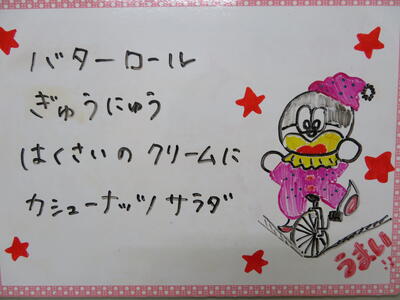 バターロール
ぎゅうにゅう
はくさいの クリームに
カシューナッツサラダ
うまい!!